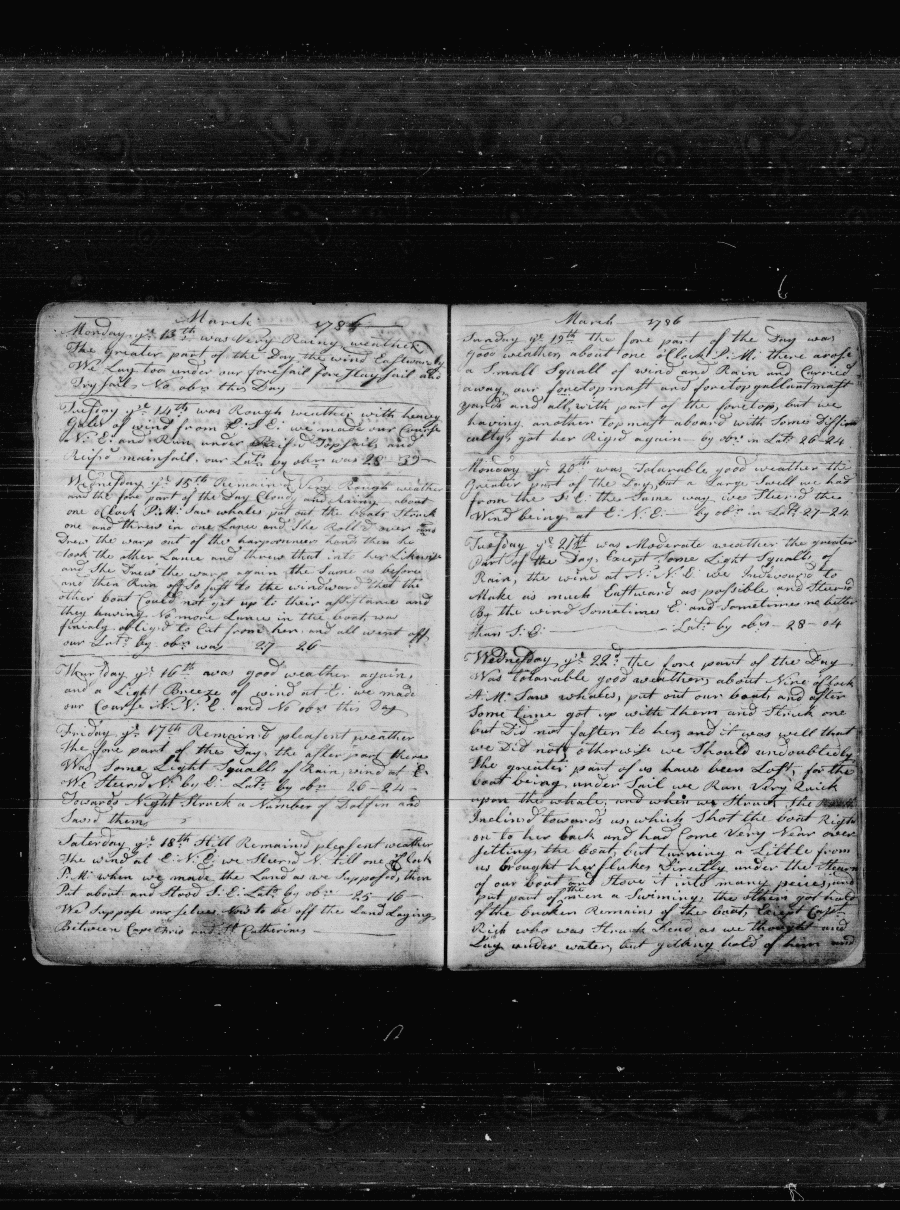 March 1786
Monday ye 13th was Very Rainy weather
The greater part of the Day the wind Eastwardly
We Lay too under our foresail fore Staysail and
Trysail No obsn this Day
Tuesday ye 14th was Rough weather with heavy
Gales of wind from E.S.E. we made our Course
N.E. and Run under Reif'd Topsails and
Reif'd mainsail, our Latn by obsn was 28-39
Wednesday ye 15th Remain'd Very Rough weather
and the fore part of the Day Cloudy and Rainy about
one oClock P.M. Saw whales put out the boats Struck
one and threw in one Lance and She Roll'd over and
Drew the warp out of the harpooners hands then he
took the other Lance and threw that into her Likewise
and She Drew the warp again the Same as before
and then Run off So fast to the windward that the
other boat Could not get up to their assistance and
they having No more Lances in the boat, was
finialy obliged to Cut from her, and all went off.
our Latn by obsn was 27-26
Thursday ye 16th was good weather again,
and a Light Breeze of wind at E. we made
our Course N.N.E. and No obsn this Day
Friday ye 17th Remain'd pleasent weather
The fore part of the Day, the after part there
Was Some Light Squalls of Rain, wind at E.
We Steer'd N. by E. Latn by obsn 26-24
Towards Night Struck a Number of Dolfin and
Sav'd them
Saturday ye 18th Still Remain'd pleasent weather
The wind at E.N.E. we Steer'd N. till one oClock
P.M. when we made the Land as we Supposed, then
Put about and Stood S.E. Latn by obsn 25-16
We Suppose our selves Now to be off the Land Laying
Between Cape and St Catherines
March 1786
Sunday ye 19th the fore part of the Day was
good weather, about one oClock P.M. there arose
a Small Squall of wind and Rain and Carried
away our foretopmast and foretopgallantmast
yards and all, with part of the foretop, but we
having another topmast aboard with Some Diffi
culty, got her Rig'd again by obsn in Latn 26-24
Monday ye 20th was Tolarable good weather the
Greater part of the Day, but a Large Swell we had
from the S.E. the Same way we Steer'd the
Wind being at E.N.E. by obsn in Latn 27-24
Tuesday ye 21st was Moderate weather the greater
Part of the Day, Except Some Light Squalls of
Rain, the wind at N.N.E. we Indevour'd to
Make as much Eastward as possible, and Steer'd
By the wind Sometimes E. and Sometimes no better
than S.E. Latn by obsn 28-04
Wednesday ye 22d the fore part of the Day
Was tolarable good weather, about Nine oClock
A.M. Saw whales, put out our boats, and after
Some time got up with them and Struck one
but Did not fasten to her, and it was well that
we Did not, otherwise we Should undoubtedly
the greater part of us have been Lost, for the
boat being under Sail we Run Very Quick
upon the whale, and when we Struck She
Inclin'd towards us, which Shot the boat Right
on to her back and had Come Very Near over
setting the boat, but turning a Little from
us brought her flukes Directly under the Stearn
of our boat and Stove it into many peices, and
put part of the men a Swiming, the others got hold
of the broken Remains of the boat, Except Capt
Rich who was Struck Dead as we thought and
Lay under water, but getting hold of him and